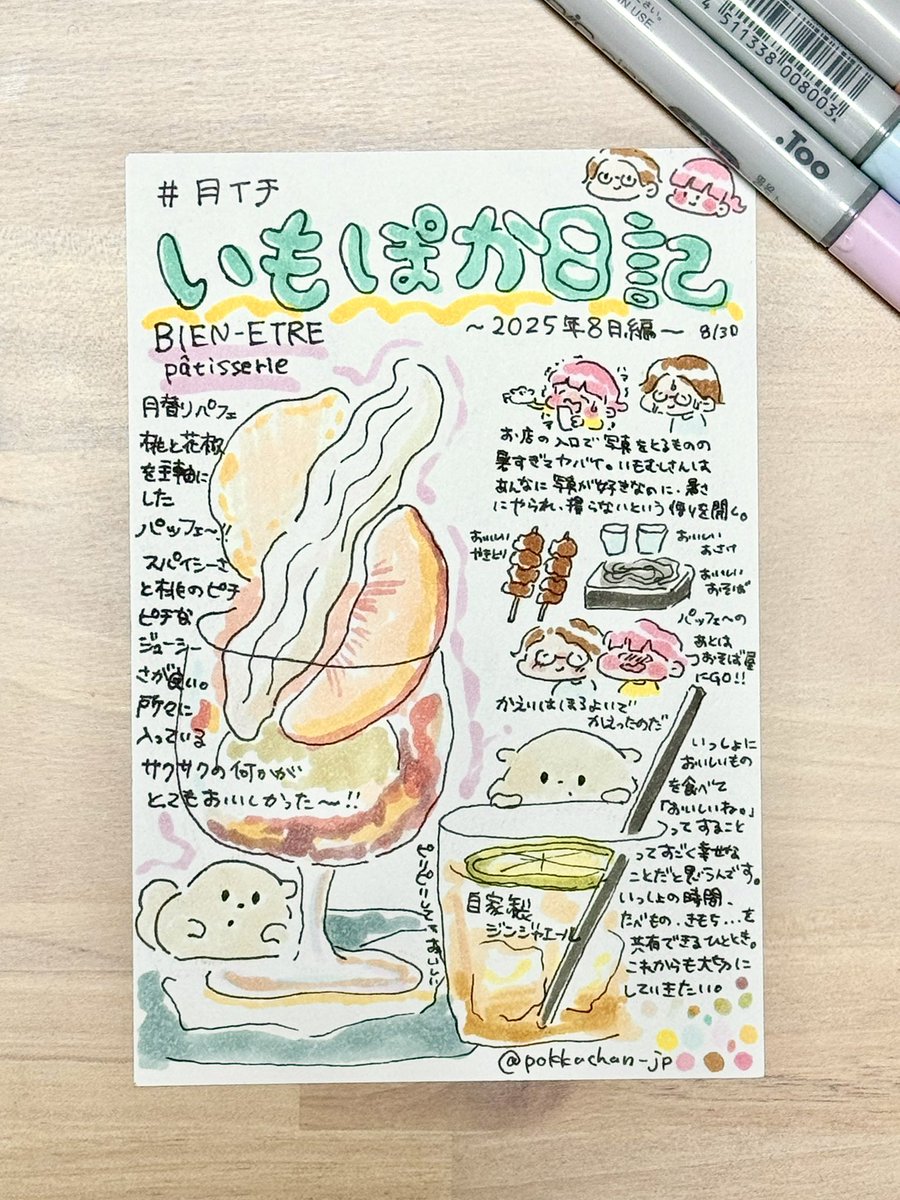 # 月イチ
いもぽか日記
BIEN-ETRE
pâtisserie
~2025年8月編~ 8/30
月替りパフェ
桃と花椒
を主軸に
した
パッフェ~
スパイシーさ
と桃のピチ
ピチな
ジューシー
さが良い。
所々に
入っている
サクサクの何かが
とてもおいしかった~!!
お店の入口で写真をとるものの
暑すぎてヤバイ。いもむしさんは
あんなに写真が好きなのに、暑さ
にやられ、撮らないという悟りを開く。
おいしい
やきとり
おいしい
おさけ
おいしい
おそば
パッフェ~の
あとは
おそば屋
にGO!!
かえりはほろよいで
かえったのだ
いっしょに
おいしいもの
を食べて
「おいしいね。」
ってすること
ってすごく幸せな
ことだと思うんです。
いっしょの時間、
たべもの、きもち…を
共有できるひととき。
これからも大切に
していきたい。
自家製
ジンジャエール
ピリピリしてておいしい
@pokkachan_jp
.Too
4 511338 008003
IN USE